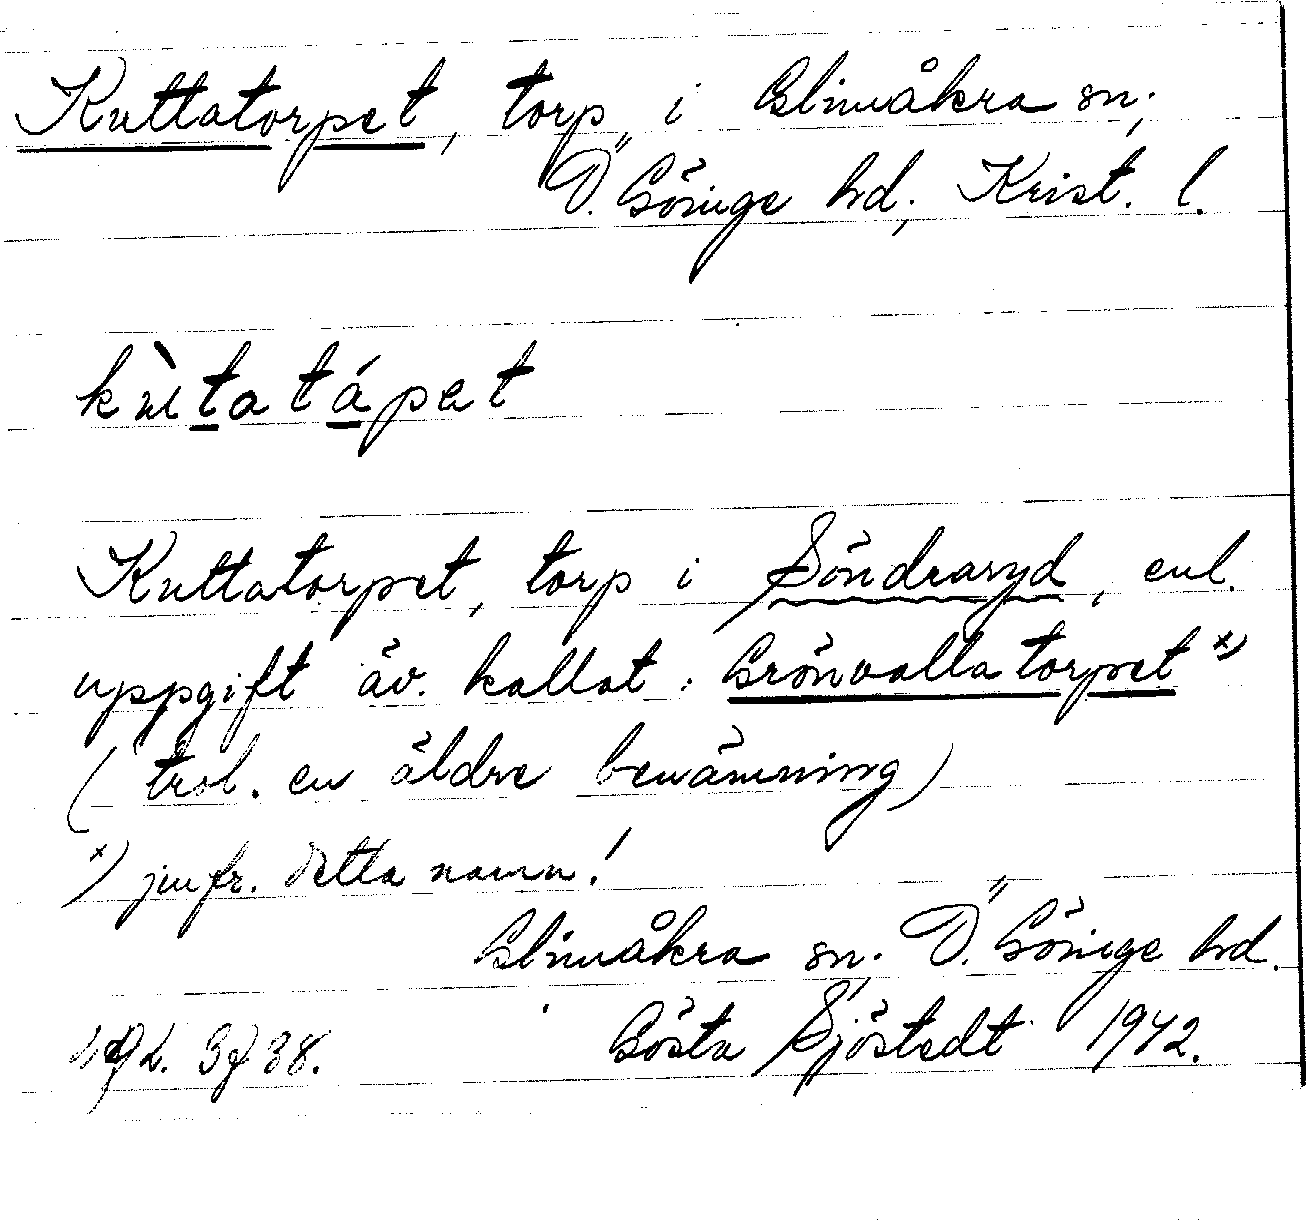 Kuttatorpet, torp i Glimåkra sn;
Ö. Göinge hd; Krist. l.
kùtatápet
Kuttatorpet, torp i Söndraryd, enl.
uppgift äv. kallat: Grönvallatorpet x)
(trol. en äldre benämning)
x) jmfr. detta namn!
Glimåkra sn. Ö. Göinge hd.
Gösta Sjöstedt 1942.